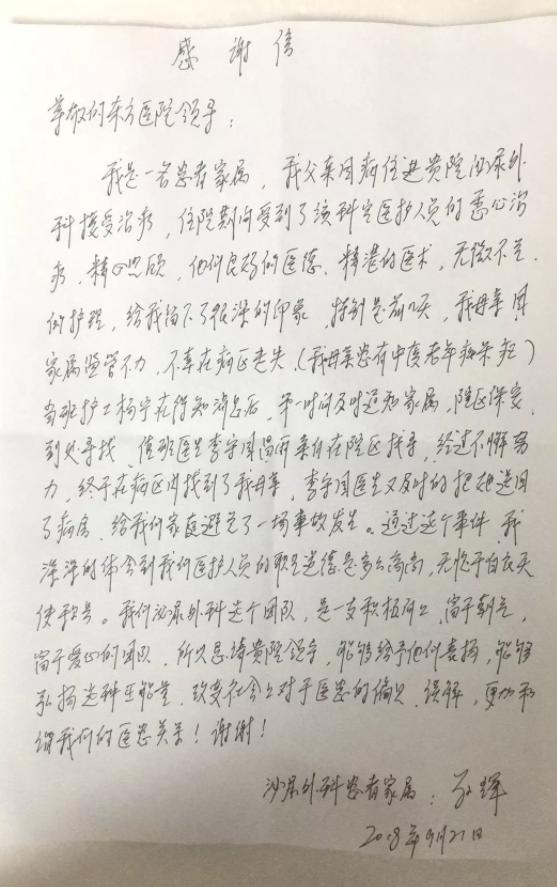 感谢信
尊敬的东方医院领导：
我是一名患者家属，我父亲因病住进贵院泌尿外
科接受治疗，住院期间受到了该科室医护人员的悉心治
疗，精心照顾，他们良好的医德、精湛的医术，无微不至
的护理，给我留下了很深的印象，特别是前几天，我母亲因
家属监管不力，不幸在病区走失（我母亲患有中度老年痴呆症）
当班护士杨宇在得知消息后，第一时间及时通知家属，院区保安，
到处寻找，值班医生李守国冒雨亲自在院区找寻，经过不懈努
力，终于在病区内找到了我母亲，李守国医生又及时的把她送回
了病房，给我们家庭避免了一场事故发生。通过这个事件，我
深深的体会到我们医护人员的职业道德是多么高尚，无愧于白衣天
使称号。我们泌尿外科这个团队，是一支积极向上，富于朝气，
富于爱心的团队，所以恳请贵院领导，能够给予他们表扬，能够
弘扬这种正能量，改变社会上对于医患的偏见、误解，更加和
谐我们的医患关系！谢谢！
泌尿外科患者家属：
2018年9月21日